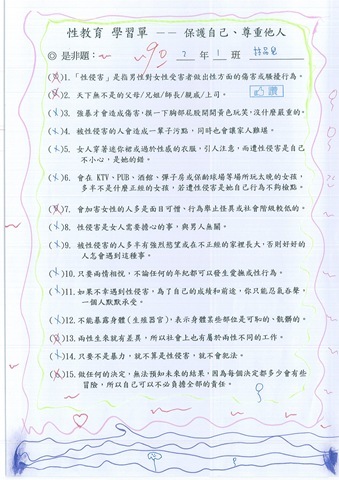 性教育 學習單 —— 保護自己、尊重他人
◎ 是非題: 90 2 年 1 班
( )1. 「性侵害」是指男性對女性受害者做出性方面的傷害或騷擾行為。
( )2. 天下無不是的父母/兄姐/師長/親戚/上司。 讚
( )3. 強暴才會造成傷害，摸一下胸部屁股開開黃色玩笑，沒什麼嚴重的。
( )4. 被性侵害的人會造成一輩子污點，同時也會讓家人難堪。
( )5. 女人穿著迷你裙或過於性感的衣服，引人注意，而遭性侵害是自己
不小心，是她的錯。
( )6. 會在 KTV、PUB、酒館、彈子房或保齡球場等場所玩太晚的女孩，
多半不是什麼正經的女孩，若遭性侵害是她自己行為不夠檢點。
( )7. 會加害女性的人多是面目可憎、行為舉止怪異或社會階級較低的。
( )8. 性侵害是女人需要擔心的事，與男人無關。
( )9. 被性侵害的人多半有強烈慾望或在不正經的家裡長大，否則好好的
人怎會遇到這種事。
( )10. 只要兩情相悅，不論任何的年紀都可以發生愛撫或性行為。
( )11. 如果不幸遇到性侵害，為了自己的成績和前途，你只能忍氣吞聲，
一個人默默承受。
( )12. 不能暴露身體(生殖器官)，表示身體某些部位是可恥的、骯髒的。
( )13. 兩性生來就有差異，所以社會上也有屬於兩性不同的工作。
( )14. 只要不是暴力，就不算是性侵害，就不會犯法。
( )15. 做任何的決定，無法預知未來的結果，因為每個決定都多少會有些
冒險，所以自己可以不必負擔全部的責任。